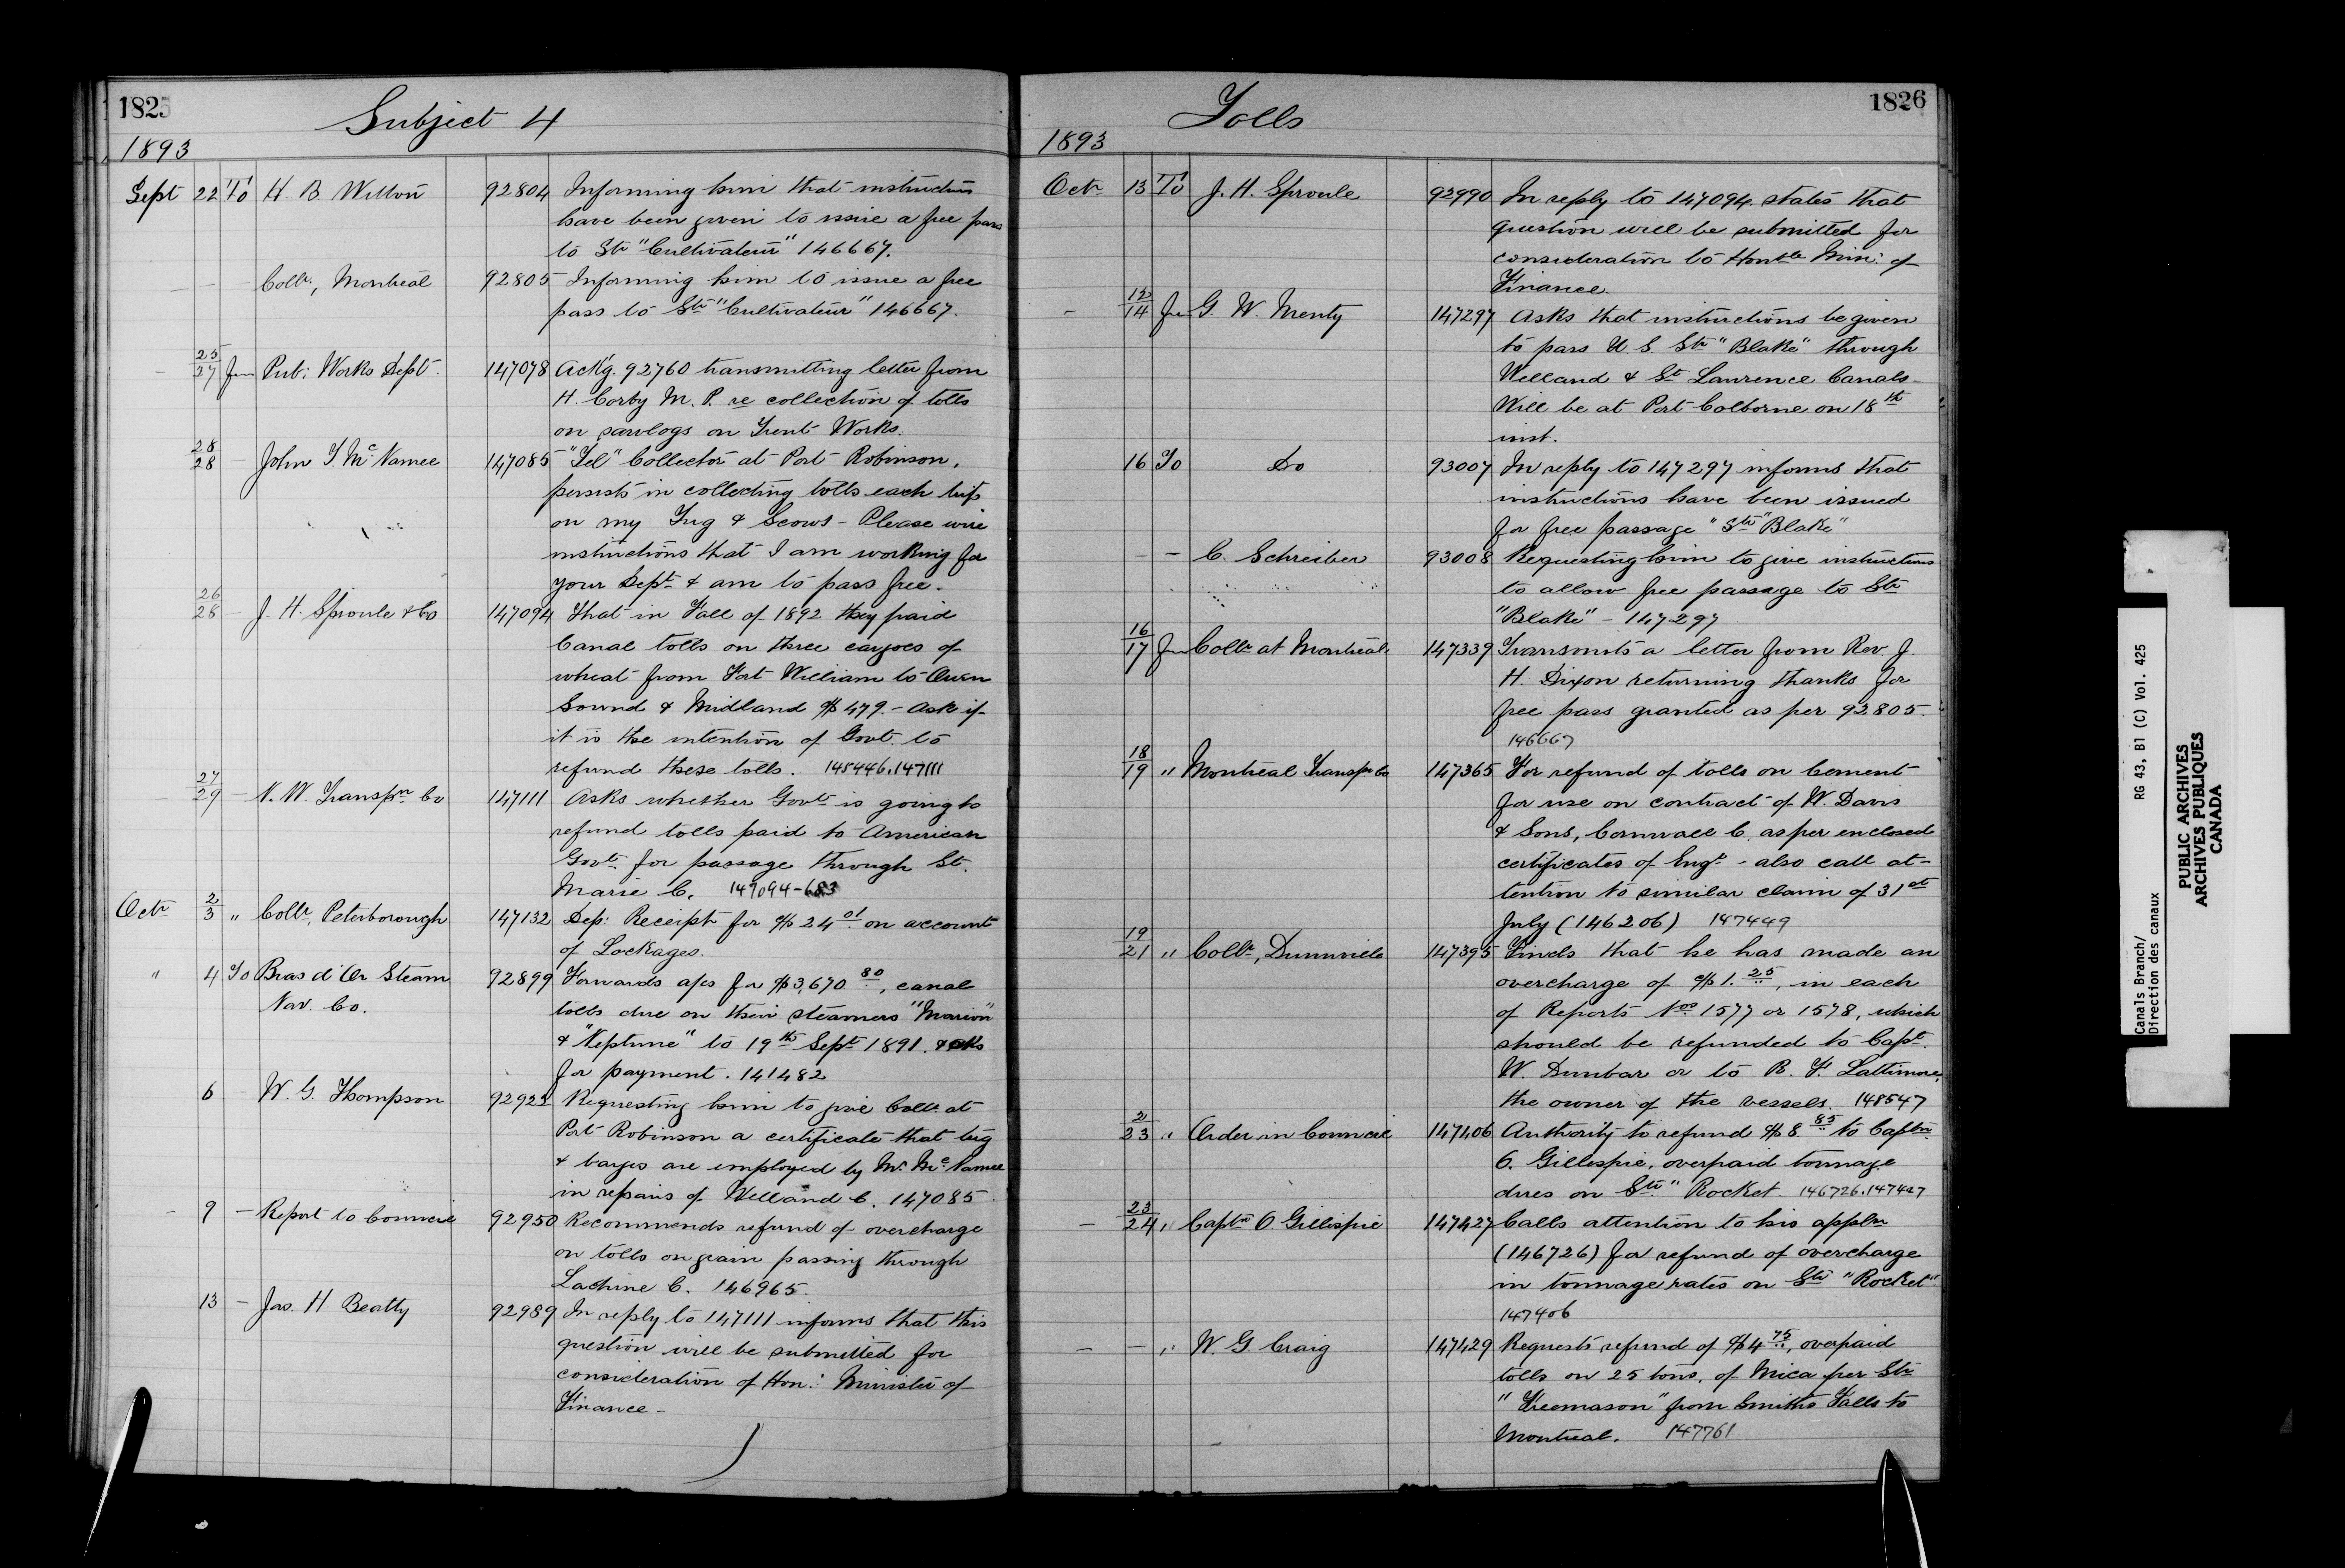 1825
Subject 4
1893
Sept 22 To H. B. Wilson 92804 Informing him that instructions
have been given to issue a free pass
to Str "Cultivateur" 146667.
— — Collr, Montreal 92805 Informing him to issue a free
pass to Str "Cultivateur" 146667.
— 25/27 Frm Pub: Works Dept. 147078 Ackg. 92760 transmitting letter from
H. Corby M. P. re collection of tolls
on sawlogs on Trent Works.
28/28 — John T. McNamee 147085 "Tel" Collector at Port Robinson,
persists in collecting tolls each trip
on my Tug & Scows - Please wire
instructions that I am working for
your Dept & am to pass free.
26/28 — J. H. Sproule & Co 147094 That in Fall of 1892 they paid
Canal tolls on three cargoes of
wheat from Fort William to Owen
Sound & Midland $479. - Ask if
it is the intention of Govt. to
refund these tolls. 145446.147111
27/29 — N. W. Transpn Co 147111 Asks whether Govt is going to
refund tolls paid to American
Govt. for passage through St.
Marie C. 147094-683
Octr 2/3 " Collr, Peterborough 147132 Dep: Receipt for $24.01 on account
of Lockages.
" 4 To Bras d'Or Steam 92899 Forwards a/cs for $3,670.80, canal
Nav. Co. tolls due on their steamers "Marion"
& "Neptune" to 19th Sept 1891. & asks
for payment. 141482
6 — W. G. Thompson 92922 Requesting him to give Collr at
Port Robinson a certificate that tug
& barges are employed by Mr. McNamee
in repairs of Welland C. 147085
— 9 — Report to Council 92950 Recommends refund of overcharge
on tolls on grain passing through
Lachine C. 146965.
13 — Jas. H. Beatty 92989 In reply to 147111 informs that this
question will be submitted for
consideration of Hon: Minister of
Finance -
1826
Tolls
1893
Octr 13 To J. H. Sproule 92990 In reply to 147094 states that
question will be submitted for
consideration to Honble Min: of
Finance.
— 12/14 Frm G. W. Menty 147297 Asks that instructions be given
to pass U S Str "Blake" through
Welland & St Lawrence Canals -
Will be at Port Colborne on 18th
inst.
16 To Do 93007 In reply to 147297 informs that
instructions have been issued
for free passage "Str "Blake"
— — C. Schreiber 93008 Requesting him to give instructions
to allow free passage to Str
"Blake" - 147297
16/17 Frm Collr at Montreal 147339 Transmits a letter from Rev. J.
H. Dixon returning thanks for
free pass granted as per 92805.
146667
18/19 " Montreal Transpn Co 147365 For refund of tolls on Cement
for use on contract of W. Davis
& Sons, Cornwall C. as per enclosed
certificates of Engr - also call at-
tention to similar claim of 31st
July (146206) 147449
19/21 " Collr, Dunnville 147395 Finds that he has made an
overcharge of $1.25, in each
of Reports Nos 1577 or 1578, which
should be refunded to Capt.
W. Dunbar or to R. F. Lattimore,
the owner of the vessels. 148547
2/23 " Order in Council 147406 Authority to refund $8.85 to Captn
O. Gillespie, overpaid tonnage
dues on Str "Rocket. 146726.147427
— 23/24 " Captn O Gillispie 147427 Calls attention to his appln
(146726) for refund of overcharge
in tonnage rates on Str "Rocket"
147406
— — " W. G. Craig 147429 Requests refund of $4.75, overpaid
tolls on 25 tons. of Mica per Str
"Freemason" from Smiths Falls to
Montreal. 147761
Canals Branch/
Direction des canaux
RG 43, B1 (C) Vol. 425
PUBLIC ARCHIVES
ARCHIVES PUBLIQUES
CANADA